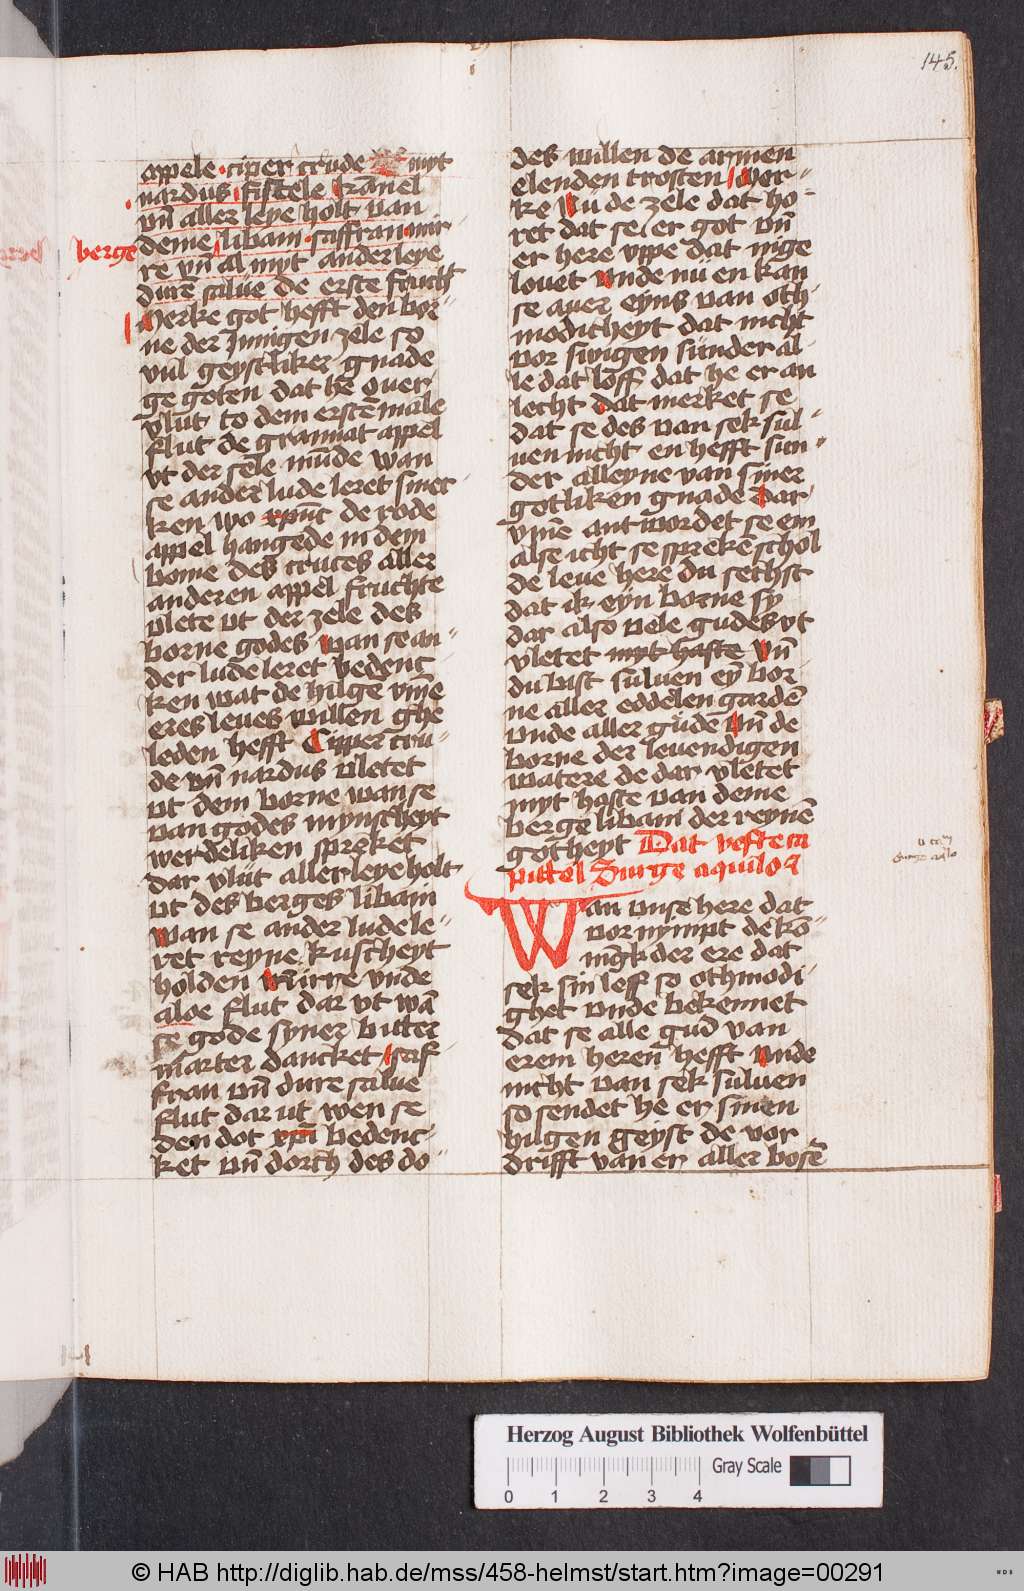 145.
appele · ciper crude myt
nardus fistele kañel
vñ aller leye holt van
berge
deme libani · saffran · mir
re vñ al myt ander leye
durē salue de erste fruch
Merke got hefft den bor
ne der Innigen zele so
vul geystliker gnade
ge goten dat hē ouer
vlut to dem erstē male
flut de grannat appel
vt der sele mūde wan
se ander lude leret smec
ken wo xpūc de rode
appel hangede in dem
bome des cruces aller
anderen appel fruchte
vlete vt der zele des
borne godes Wan se an
der lude leret bedenc
ken wat de hilge vm̄e
eres leues willen ghe
leden hefft Cipper cru
de vñ nardus vletet
vt dem borne wan se
van godes mynscheyt
werdeliken spreket
dar vlut allerleye holt
vt des berges libani
Wan se ander lude le
ret reyne kuscheyt
holden Mirre vnde
aloe flut dar vt wā
se gode syner bitter
marter dancket saf
fran vñ dure salue
flut dar ut wen se
den dot xpī bedenc
ket vñ dorch des do
des willen de armen
elenden trosten Mer
ke Nu de zele dat ho
ret dat se er got vñ
er here vppe dat nige
louet Vnde nu en kan
se auer eyns van oth
modicheyt dat nicht
vor swigen sunder al
le dat loff dat he er an
lecht dat merket se
dat se des van sek sul
uen nicht en hefft sun
der alleyne van siner
gotliken gnade Dar
vm̄e antwordet se em
alse icht se sprekē schol
de leue here du sechst
dat ik eyn borne sy
dar also vele gudes vt
vletet myt hafte Vñ
du bist suluen ey̅ bor
ne aller eddelen gardē
vnde aller gude Vñ de
borne der leuendigen
watere de dar vletet
myt haste van deme
berge libani der reynē
gotheyt Dat vefte ca
pittel Surge aquilo
Wan vnse here dat
vor nympt de kō
nīgk der ere dat
sek sin leff so othmodi
ghet vnde bekennet
dat se alle gud van
erem heren hefft Vnde
nicht van sek suluen
so sendet he er sinen
hilgen geyst de vor
drifft van er aller bosē
Herzog August Bibliothek Wolfenbüttel
Gray Scale
0 1 2 3 4
© HAB http://diglib.hab.de/mss/458-helmst/start.htm?image=00291